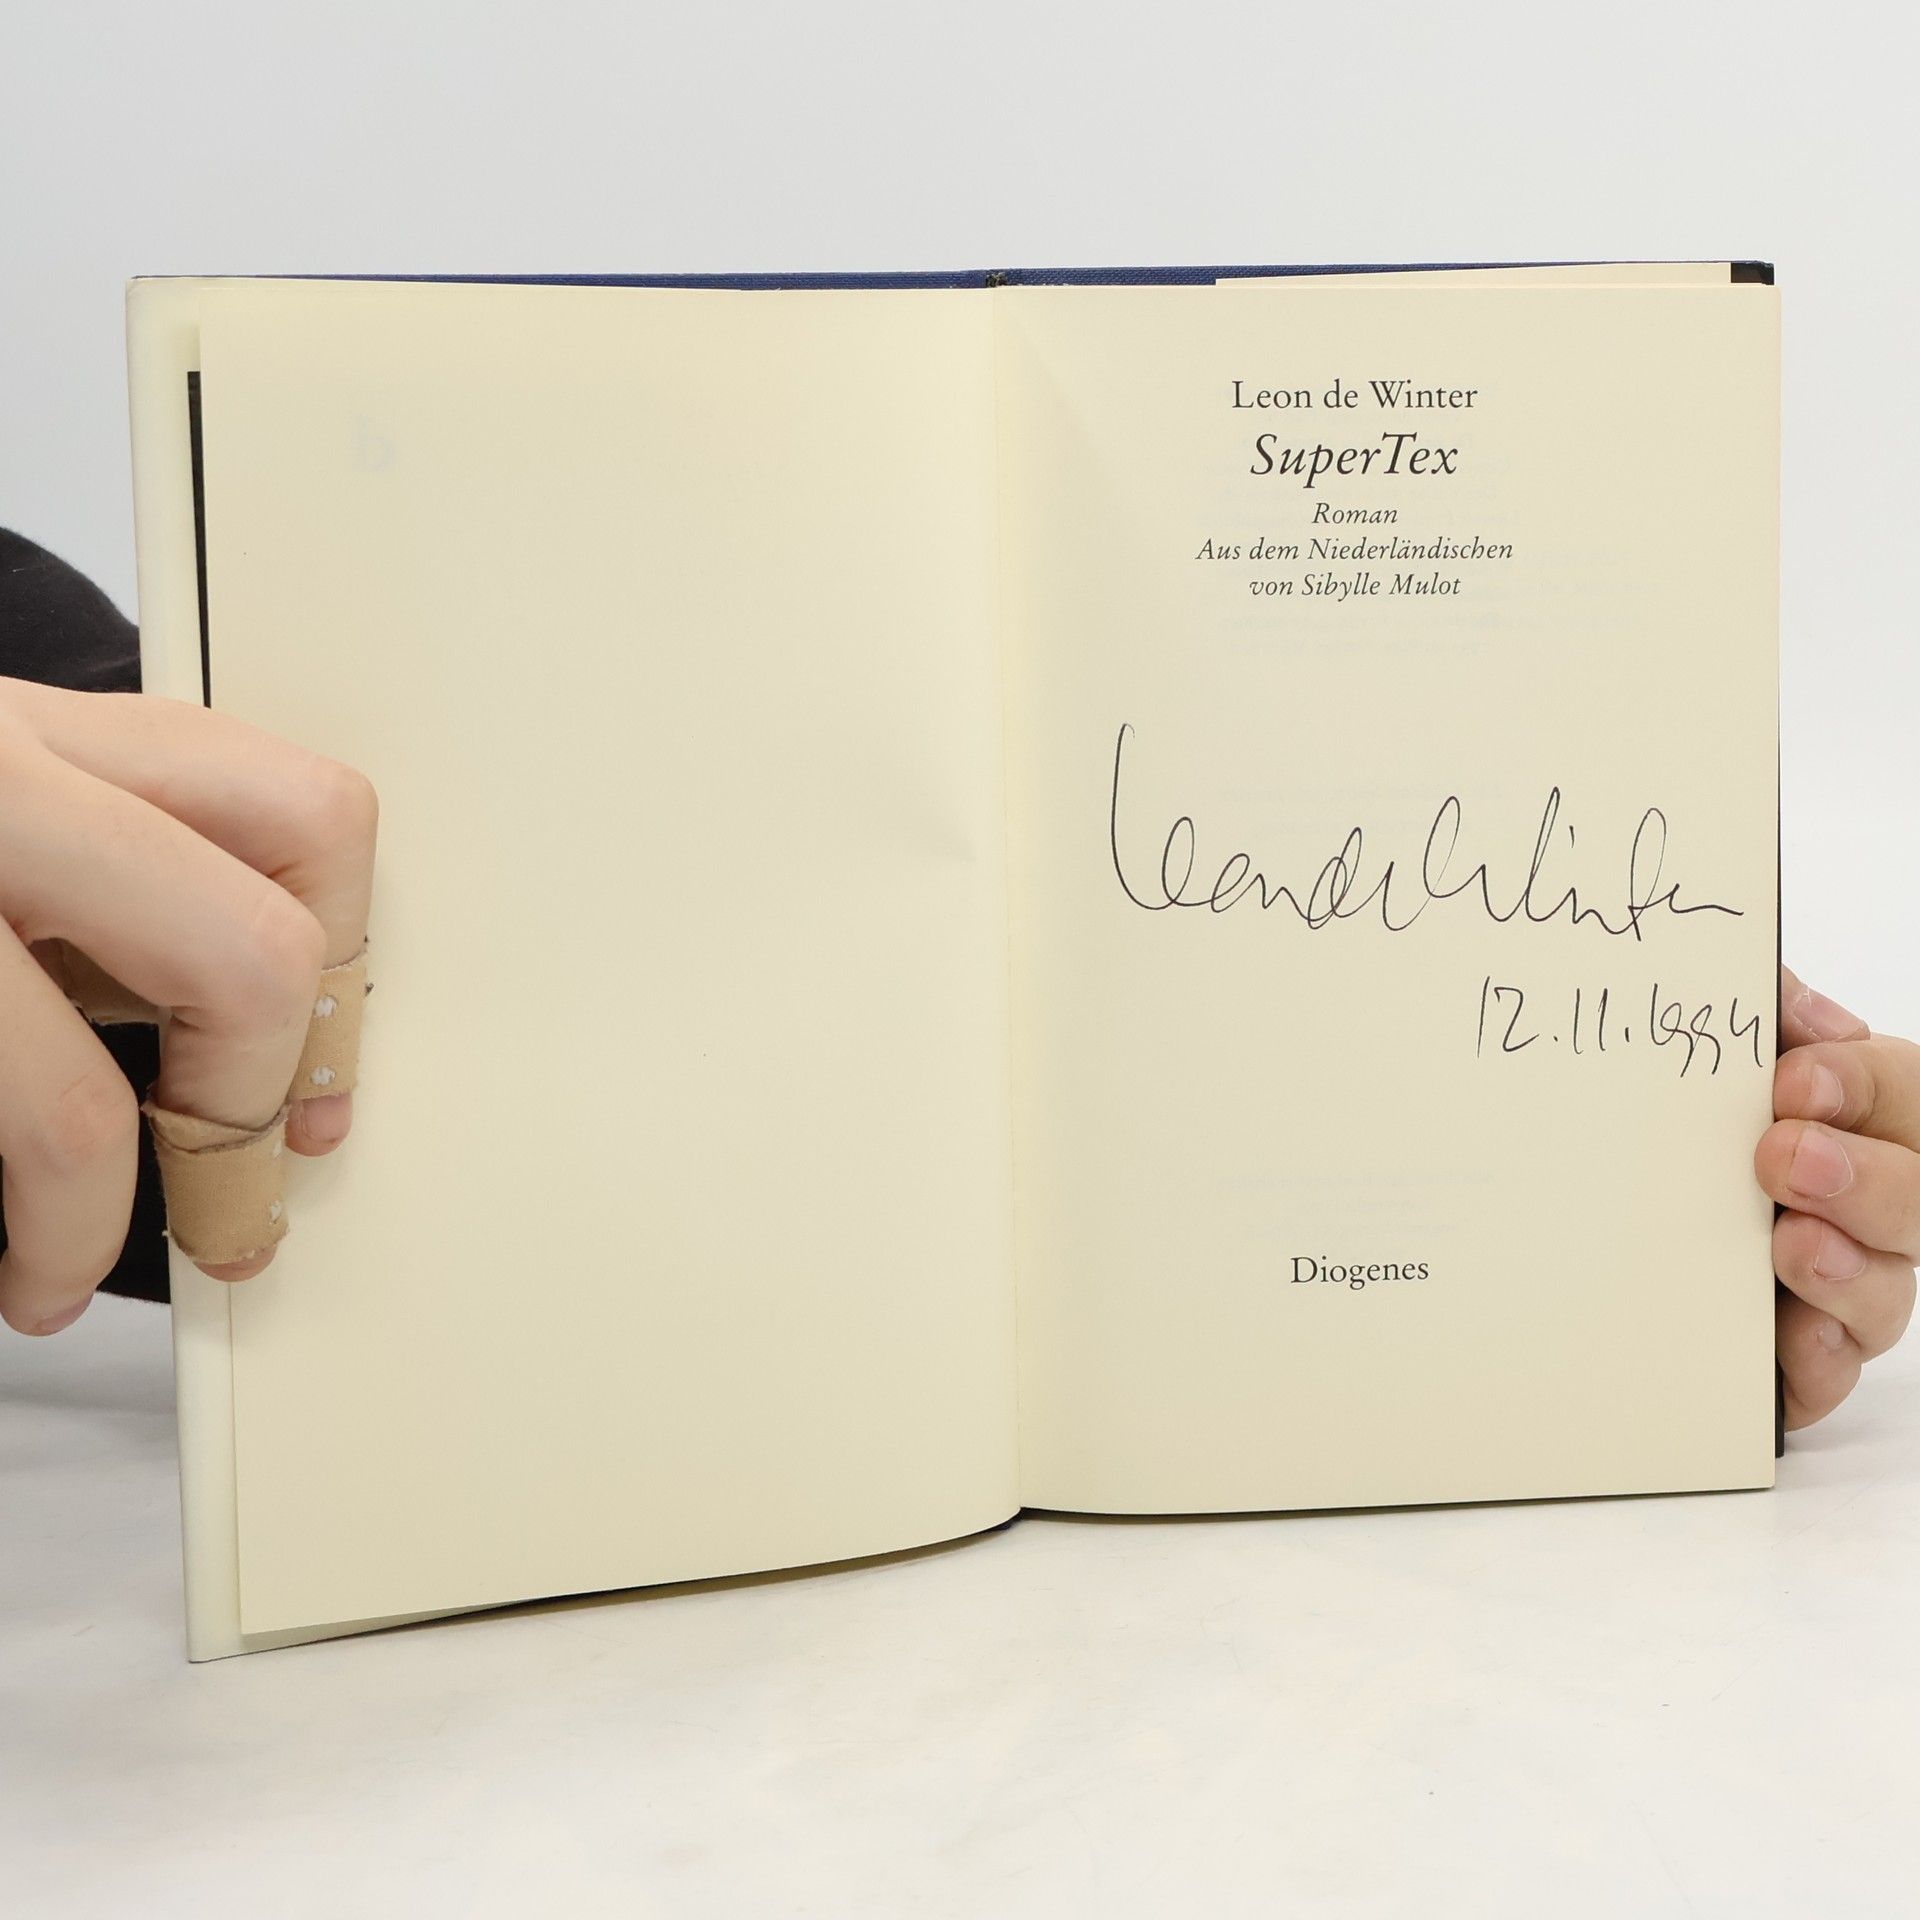 Leon de Winter
SuperTex
Roman
Aus dem Niederländischen
von Sibylle Mulot
Leon de Winter
12.11.1994
Diogenes